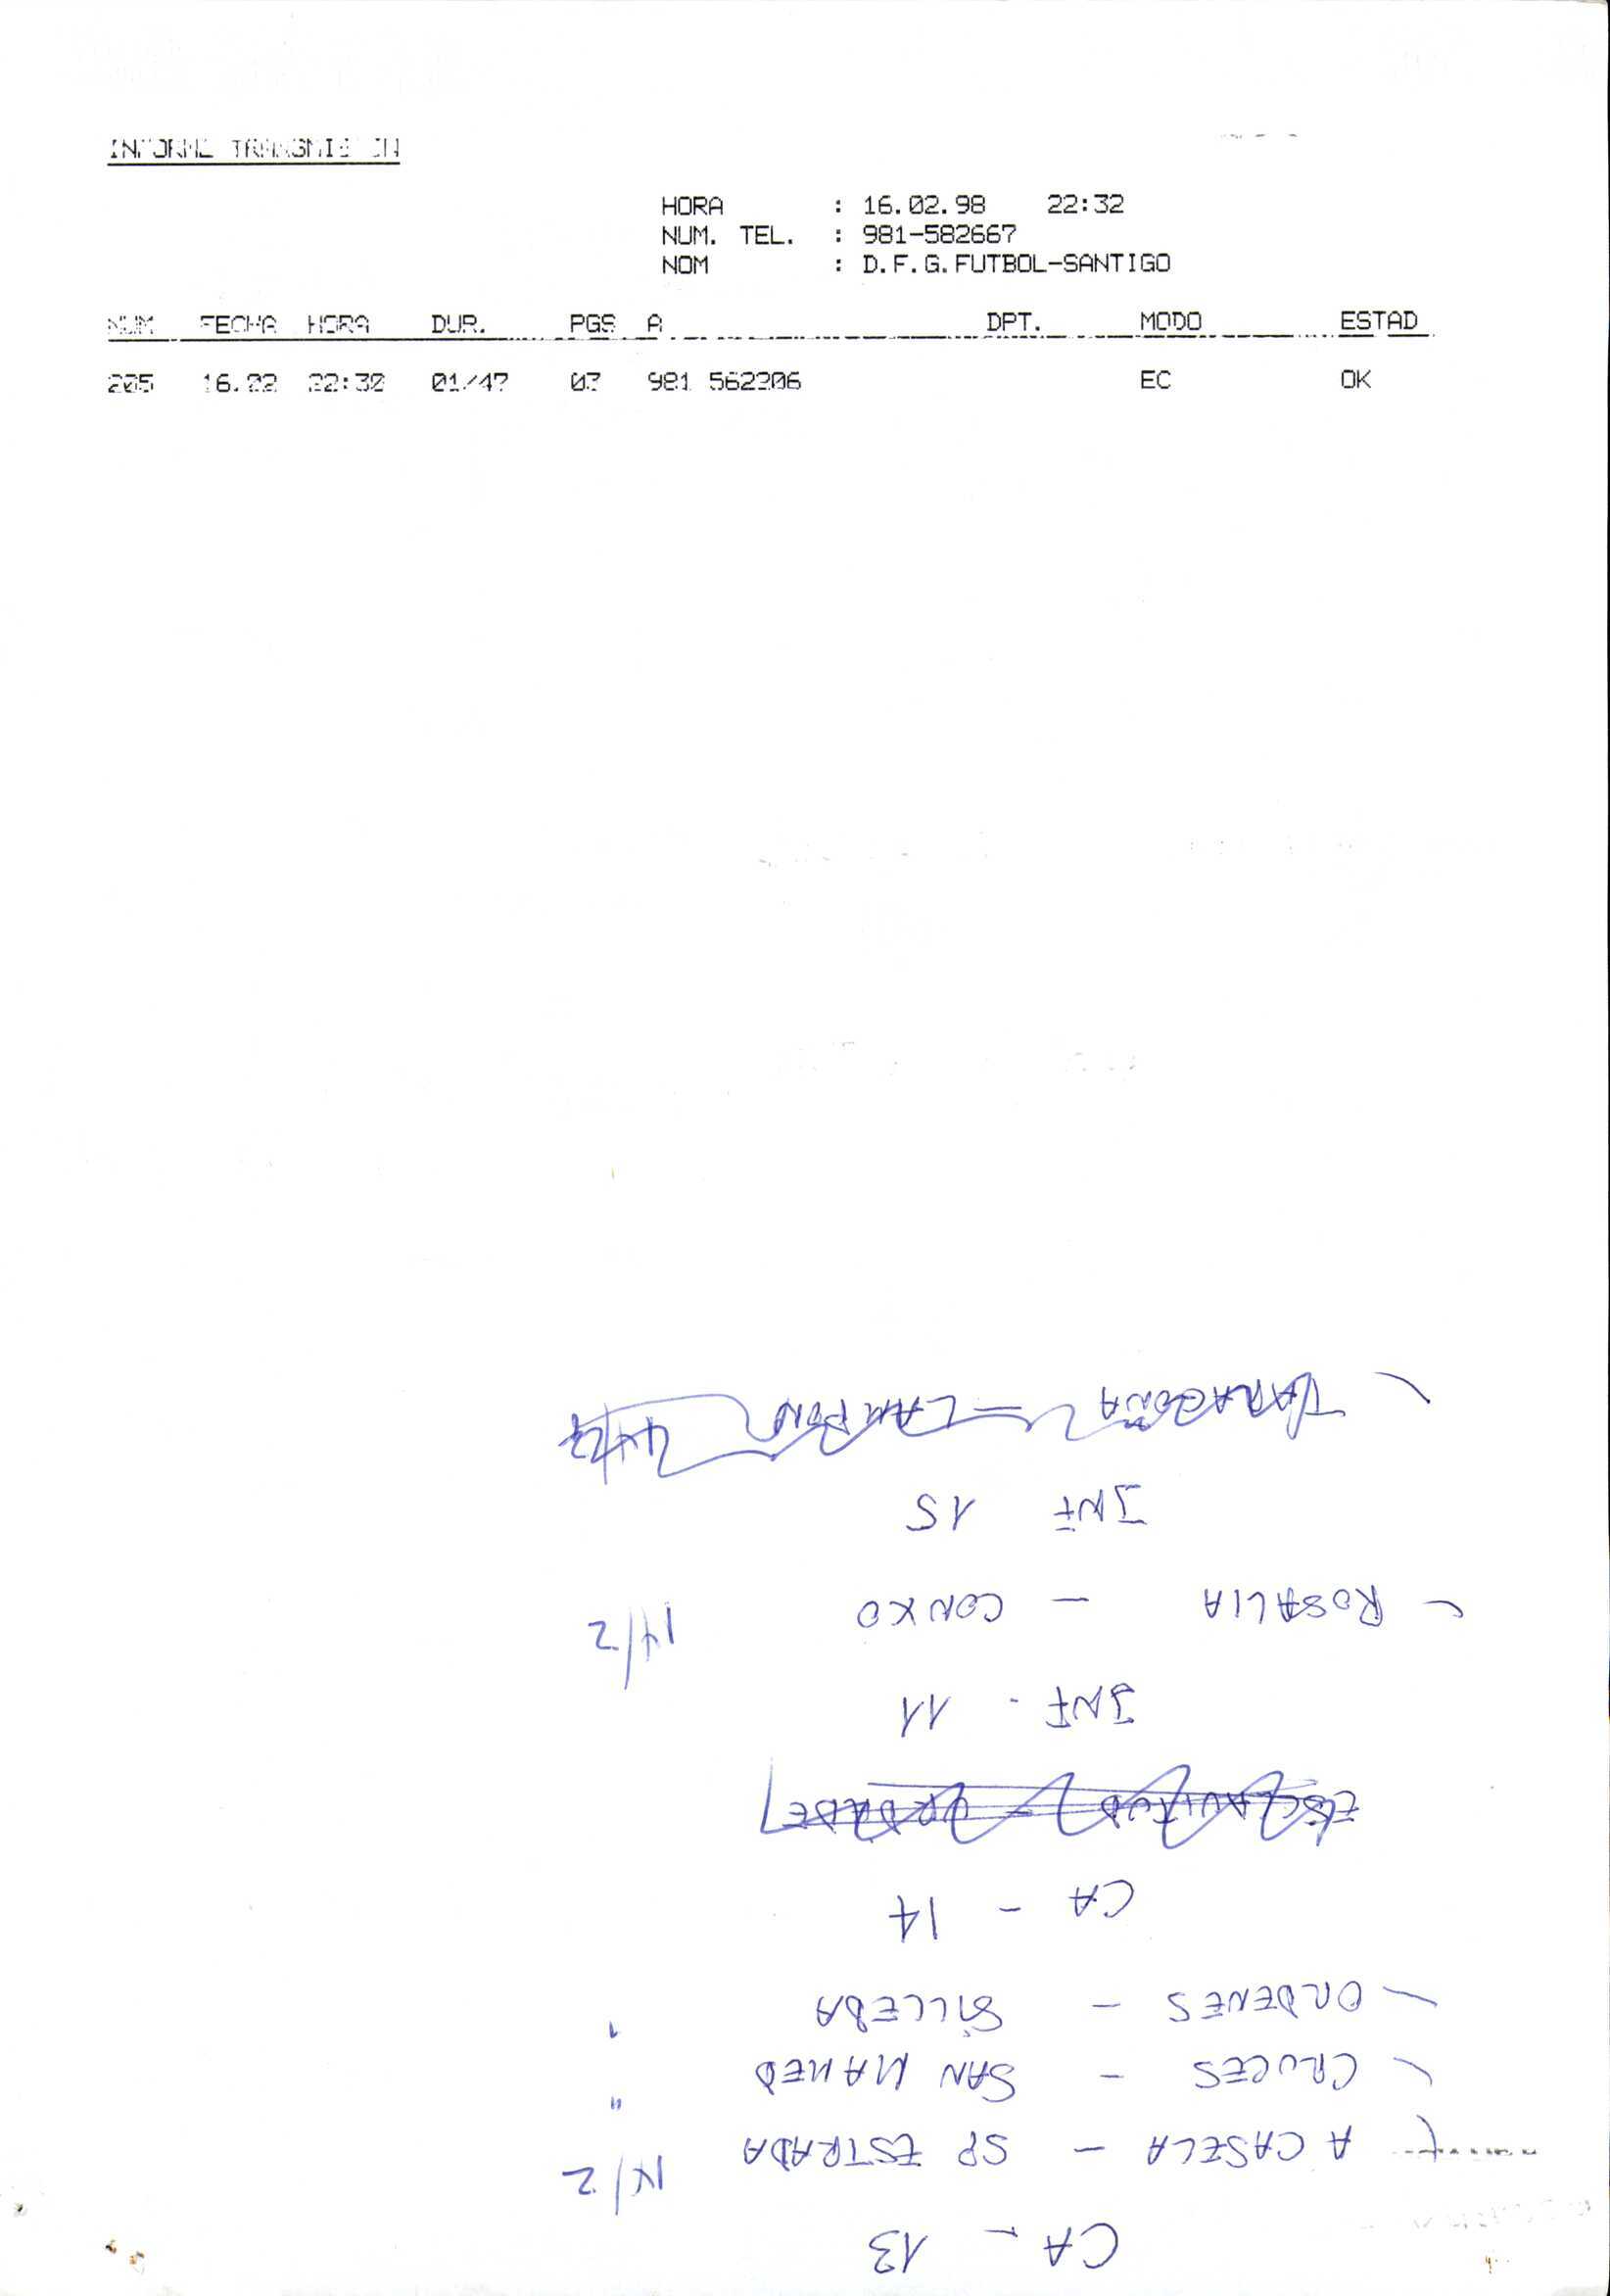 INFORME TRANSMISION
HORA : 16.02.98 22:32
NUM. TEL. : 981-582667
NOM : D.F.G.FUTBOL-SANTIGO
NUM FECHA HORA DUR. PGS A DPT. MODO ESTAD
205 16.02 22:30 01/47 03 981 562206 EC OK
CA - 13
A CASELA - SP ESTRADA 14/2
CRUCES - SAN MAMED "
ORDENES - SILLEDA "
CA - 14
ESCLAVITUD -
INF - 11
ROSALIA - CONXO 14/2
INF 15
TARAGOÑA - LAMPON 14/2